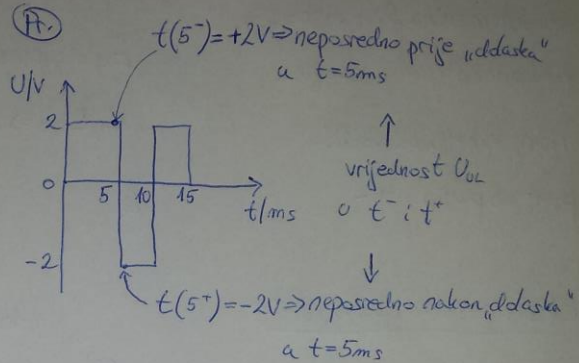 Pr.
t(5⁻)=+2V⇒neposredno prije „dolaska“
u t=5ms
U/V
2
0
5 10 15
t/ms
-2
vrijednost U_UL
u t⁻ i t⁺
t(5⁺)=-2V⇒neposredno nakon „dolaska“
u t=5ms